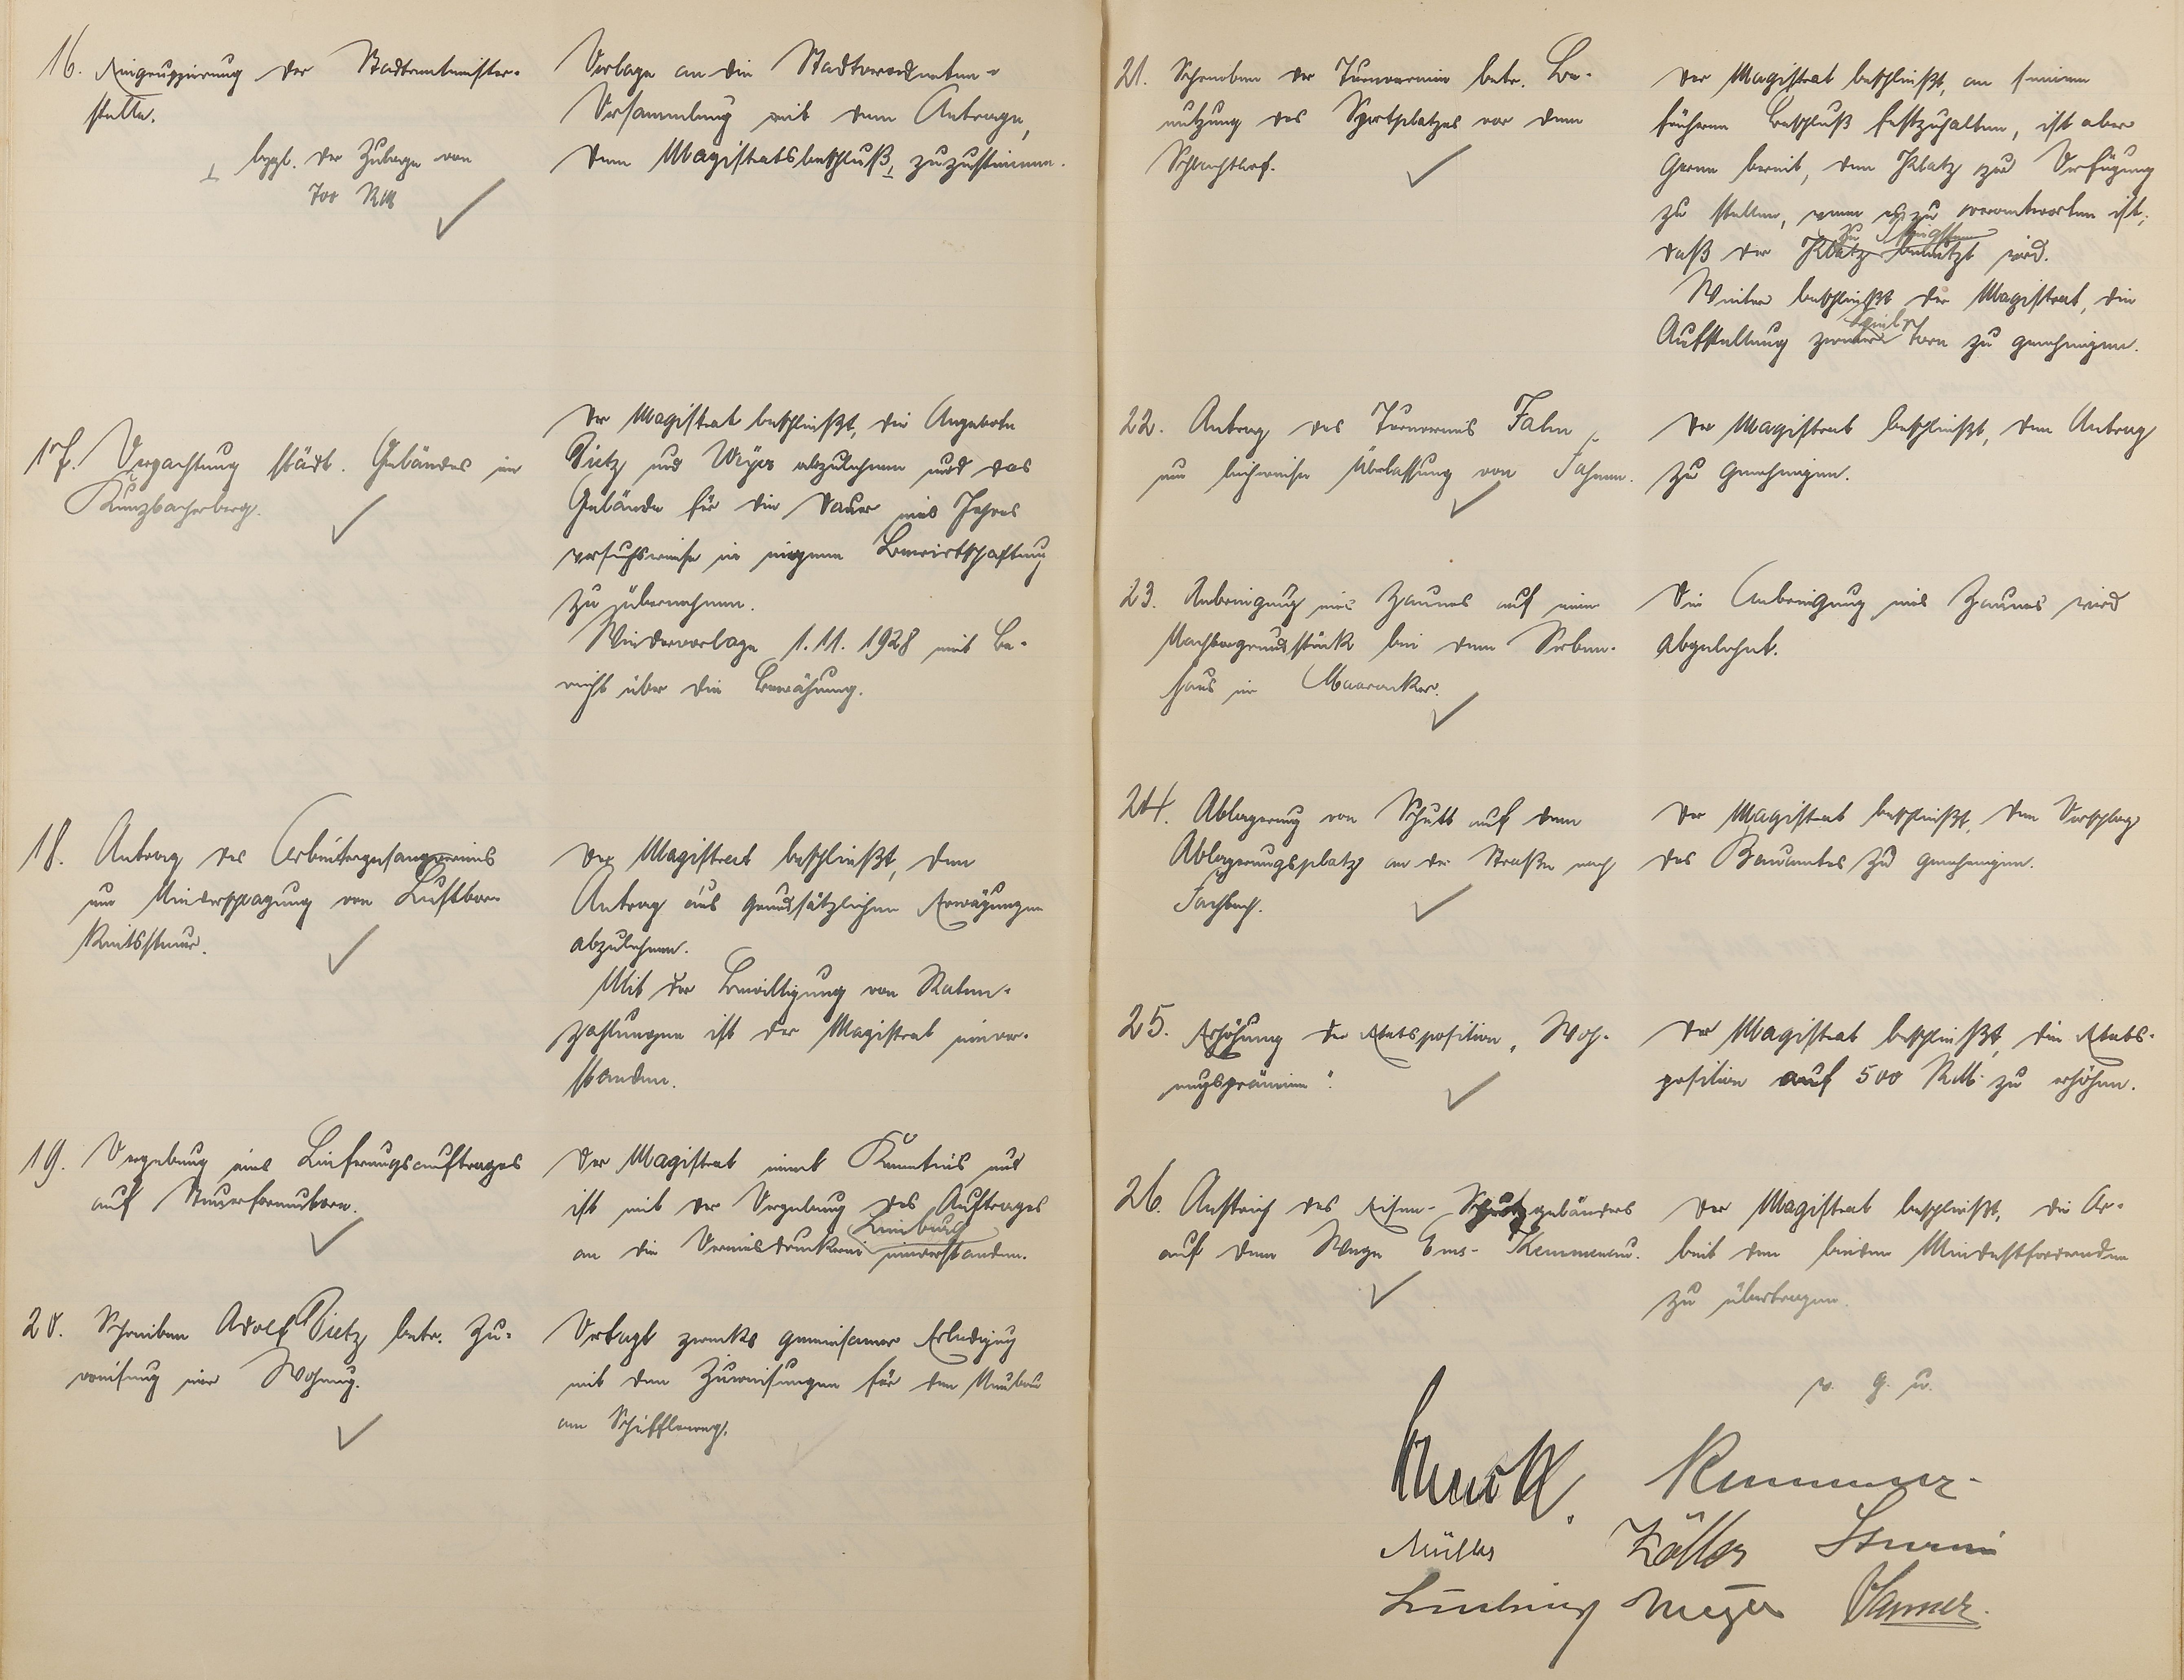 16. Eingruppierung der Stadtrentmeister-
stelle.
⊥ bezgl. der Zulage von
700 RM
Vorlage an die Stadtverordneten-
Versammlung mit dem Antrage,
dem Magistratsbeschluß ⊥ zuzustimmen.
17. Verpachtung städt. Geländes im
Kunzbacherberg.
Der Magistrat beschließt, die Angebote
Dietz und Meyer abzulehnen und das
Gelände für die Dauer eines Jahres
versuchsweise in eigene Bewirtschaftung
zu übernehmen.
Wiedervorlage 1.11.1928 mit Be-
richt über die Bewährung.
18. Antrag des Arbeitergesangvereins
um Niederschlagung von Lustbar-
keitssteuer.
Der Magistrat beschließt, den
Antrag aus grundsätzlichen Erwägungen
abzulehnen.
Mit der Bewilligung von Raten-
zahlungen ist der Magistrat einver-
standen.
19. Vergebung eines Lieferungsauftrages
auf Steuerformularen.
Der Magistrat nimmt Kenntnis und
ist mit der Vergebung des Auftrages
an die Vereinsdruckerei Limburg einverstanden.
20. Schreiben Adolf Dietz betr. Zu-
weisung einer Wohnung.
Vertagt zwecks gemeinsamer Erledigung
mit den Zuweisungen für den Neubau
am Schifflerweg.
21. Schreiben der Turnvereine betr. Be-
nutzung des Sportplatzes vor dem
Schlachthof.
Der Magistrat beschließt, an seinem
früheren Beschluß festzuhalten, ist aber
gerne bereit, den Platz zur Verfügung
zu stellen, wenn es zu verantworten ist,
daß der Platz zu benutzt wird.
Weiter beschließt der Magistrat, die
Aufstellung zweier Tore zu genehmigen.
22. Antrag des Turnvereins
um leihweise Überlassung von Fahnen.
Der Magistrat beschließt, den Antrag
zu genehmigen.
23. Anbringung eines Zaunes auf einem
Nachbargrundstück bei dem
haus im
Die Anbringung eines Zaunes wird
abgelehnt.
24. Ablagerung von Schutt auf dem
Ablagerungsplatz an der Straße nach
Fachbach.
Der Magistrat beschließt, den Vorschlag
des Bauamtes zu genehmigen.
25. Erhöhung der Etatsposition „Woh-
nungsprämien".
Der Magistrat beschließt, die Etats-
position auf 500 RM. zu erhöhen.
26. Anstrich des Eisen-Schutzgeländers
auf dem Wege Ems-Kemmenau.
Der Magistrat beschließt, die Ar-
beit den beiden Mindestfordernden
zu übertragen.
v. g. u.
Müller
Meyer